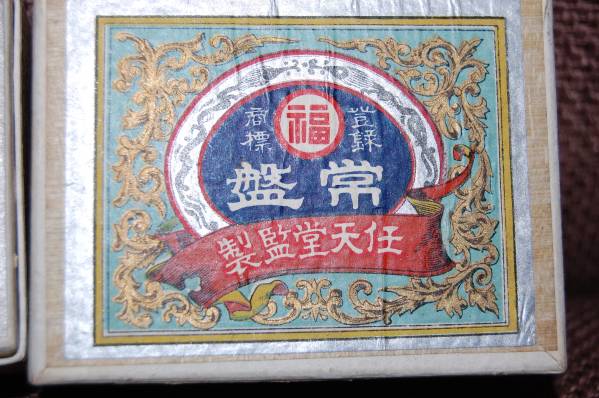 登録
福
商標
常盤
任天堂監製